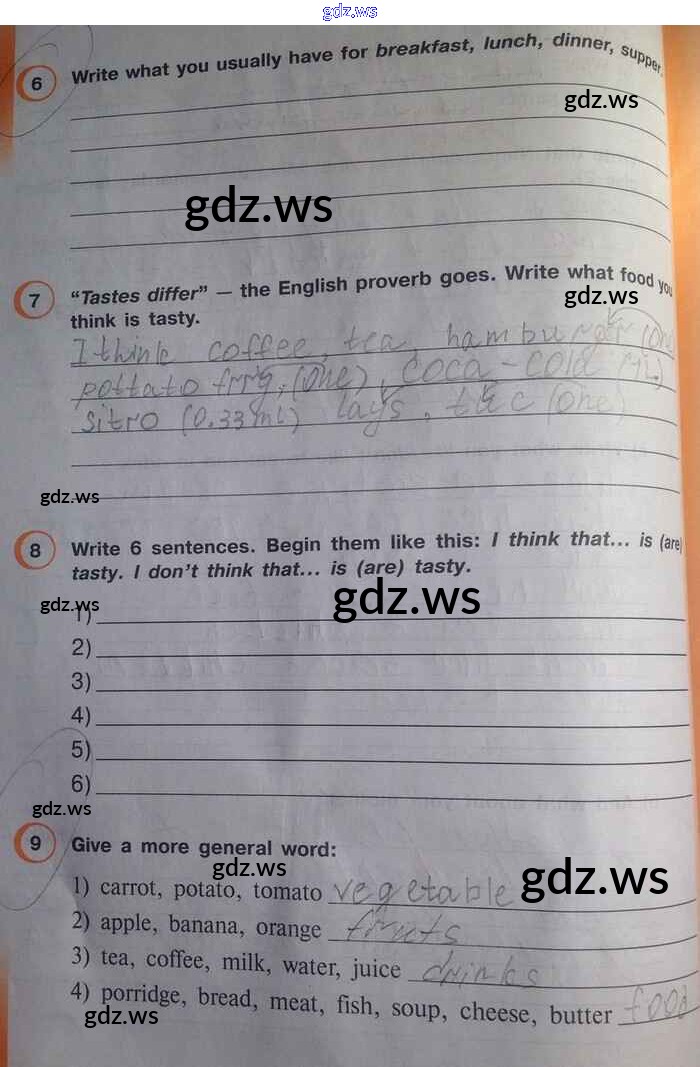 gdz.ws
6 Write what you usually have for breakfast, lunch, dinner, supper.
gdz.ws
gdz.ws
7 "Tastes differ" — the English proverb goes. Write what food you
gdz.ws
think is tasty.
I think coffee, tea, hamburger (one)
pottato frrg, (one), coca-cola (1L)
sitro (0.33 ml) lays, (one)
gdz.ws
8 Write 6 sentences. Begin them like this: I think that... is (are)
tasty. I don't think that... is (are) tasty.
gdz.ws
gdz.ws
1)
2)
3)
4)
5)
6)
gdz.ws
9 Give a more general word:
gdz.ws
gdz.ws
1) carrot, potato, tomato vegetable
2) apple, banana, orange fruts
3) tea, coffee, milk, water, juice drinks
4) porridge, bread, meat, fish, soup, cheese, butter food
gdz.ws